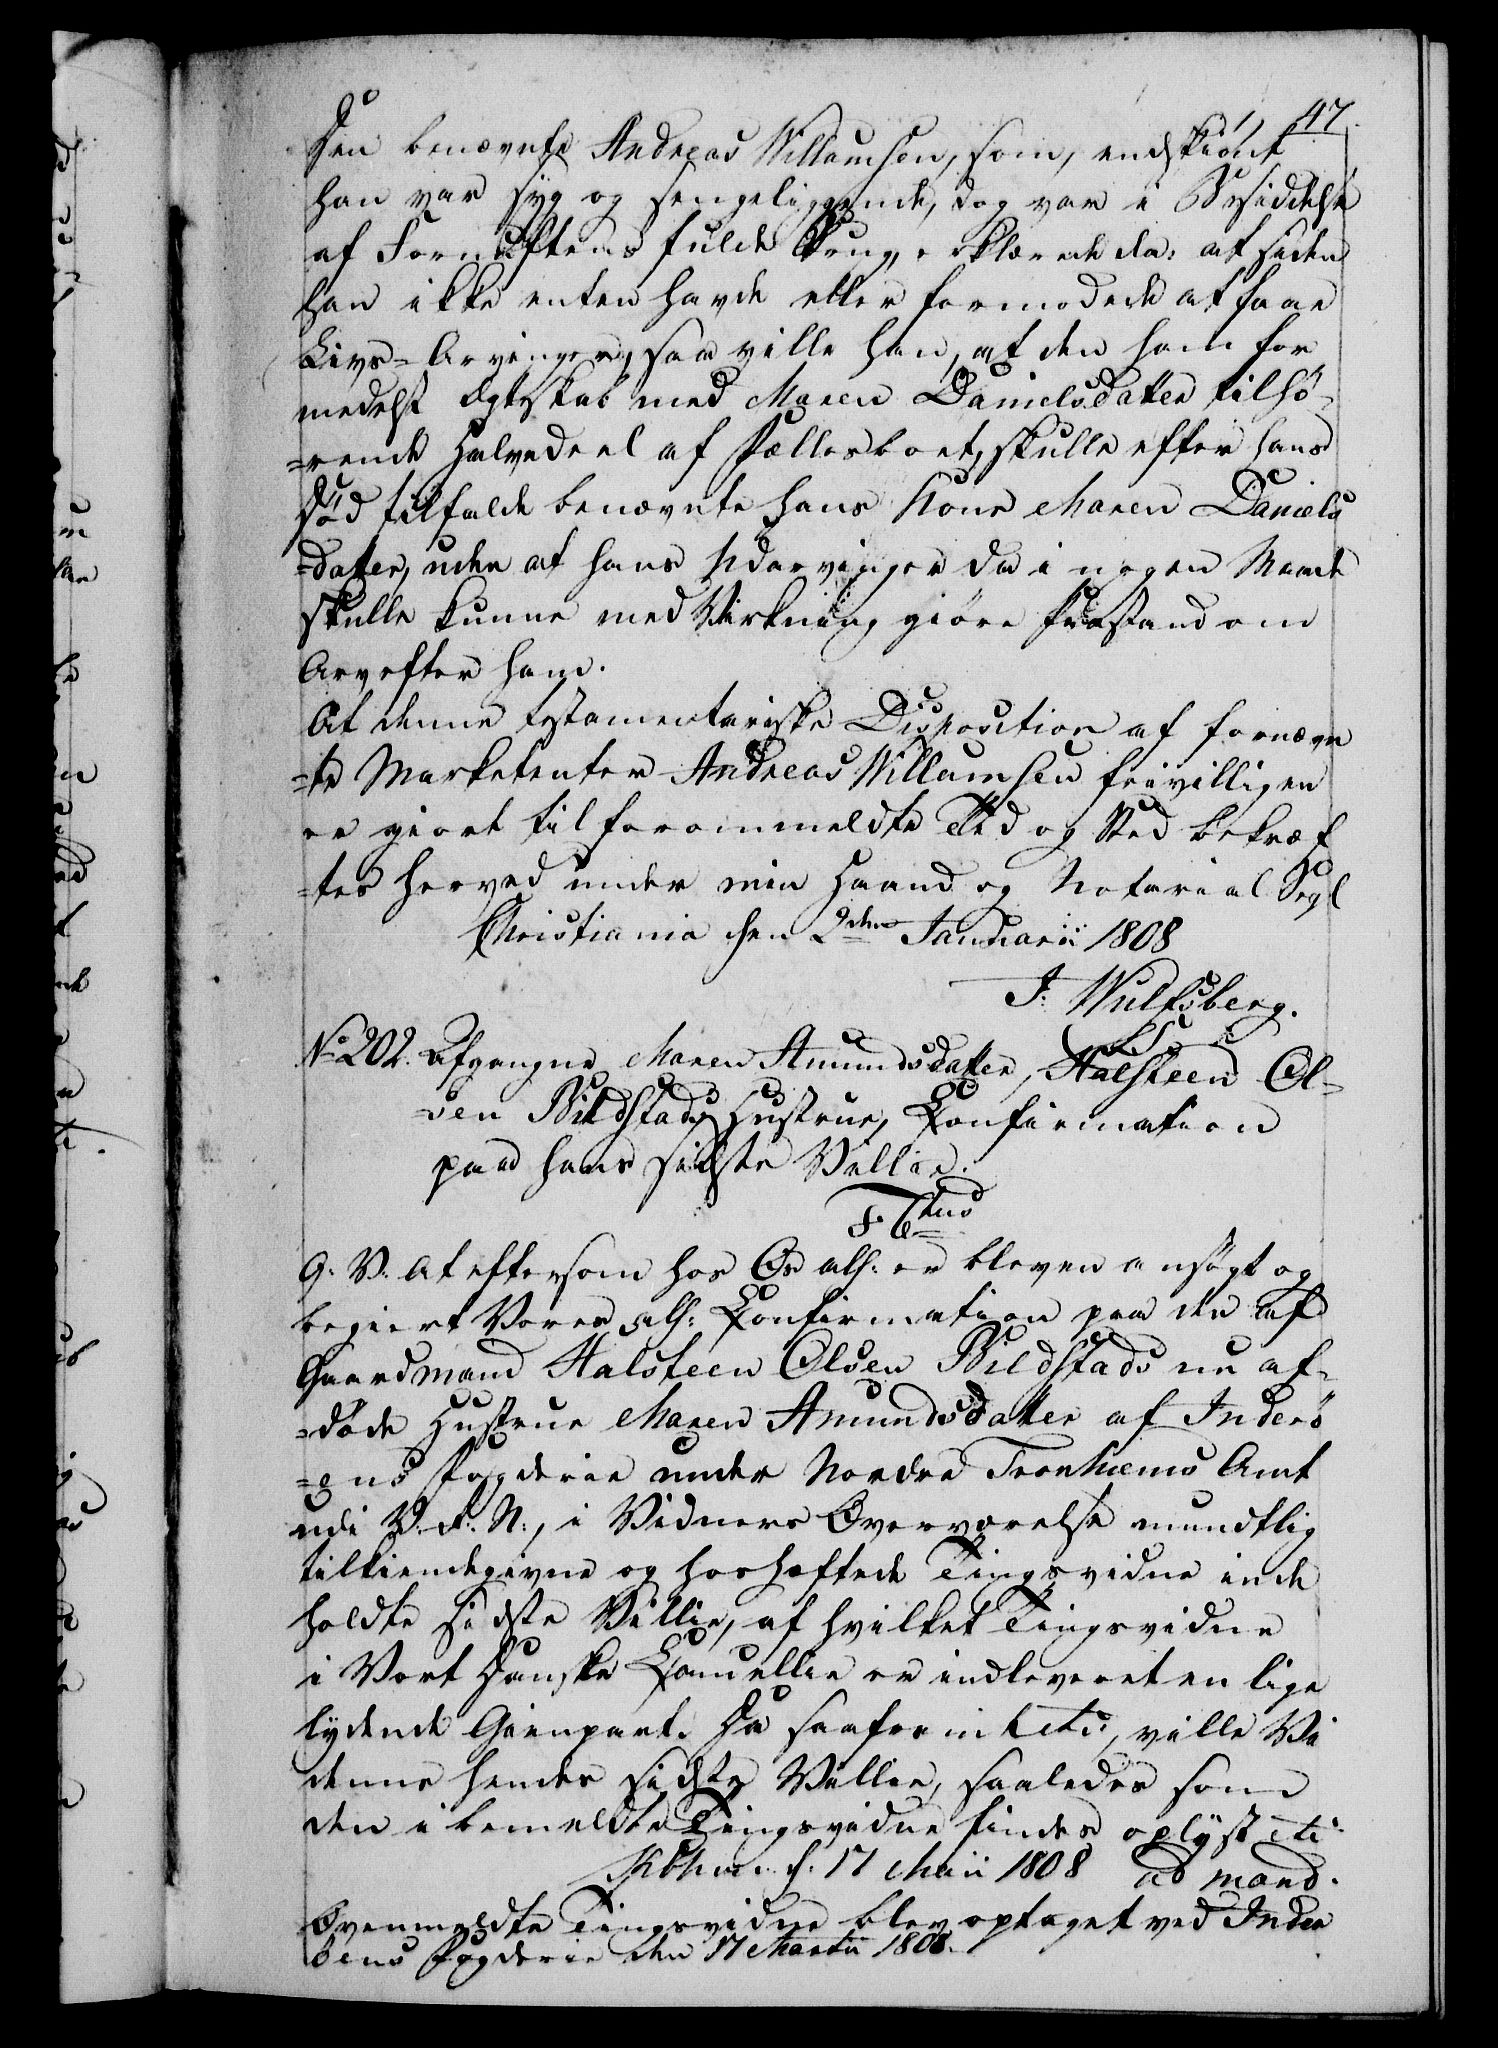 47.
Den benævnte Andreas Willumsen, som, endskiönt
han var syg og sengeliggende, dog var i Besiddelse
af Fornuftens fulde Brug, erklærede da: at siden
han ikke enten havde eller formodede at faae
Livs-Arvinger, saa ville han, at den ham for
medelst Ægteskab med Maren Danielsdatter tilhö-
=rende Halvedeel af Fællesboet, skulle efter hans
Död tilfalde benævnte hans Kone Maren Daniels
=datter, uden at hans Udarvinger da i nogen Maade
skulle kunne med Virkning giöre Paastand om
Arv efter ham.
At denne testamentariske Disposition af fornævn
=te Marketenter Andreas Willumsen frivilligen
er giort til forommeldte Tid og Sted bekræf
=tes herved under min Haand og Notarial Segl
Christiania den 2den Januarii 1808
J. Wulfsberg.
LS
No 202. Afgangne Maren Amundsdatter, Halsteen Ol-
sen Bildstads Hustrue, Confirmation
paa hans sidste Villie.
F: 6tus
G. V. At eftersom hos Os alh: er bleven ansögt og
begiert Vores alh: Confirmation paa den af
Gaardmand Halsteen Olsen Bildstads nu af-
=döde Hustrue Maren Amundsdatter af Inderö
=ens Fogderie under Nordre Tronhiems Amt
udi V. R. N:, i Vidners Overværelse mundtlig
tilkiendegivne og hoshæftede Tingsvidne inde
holdte sidste Villie, af hvilket Tingsvidne
i Vort Danske Cancellie er indleveret en lige
lydende Gienpart. Da saafremt etc:, ville Vi
denne hendes sidste Villie, saaledes som
den i bemeldte Tingsvidne findes oplyst etc:
Kbhavn d. 17 Maii 1808 ad mand.
Ovenmeldte Tingsvidne blev optaget ved Inder
öens Fogderie den 17 Martii 1808.